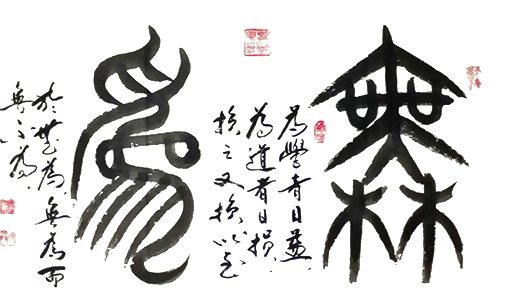 無
為學者日益
為道者日損
損之又損以至
為
於無為無為而
無不為